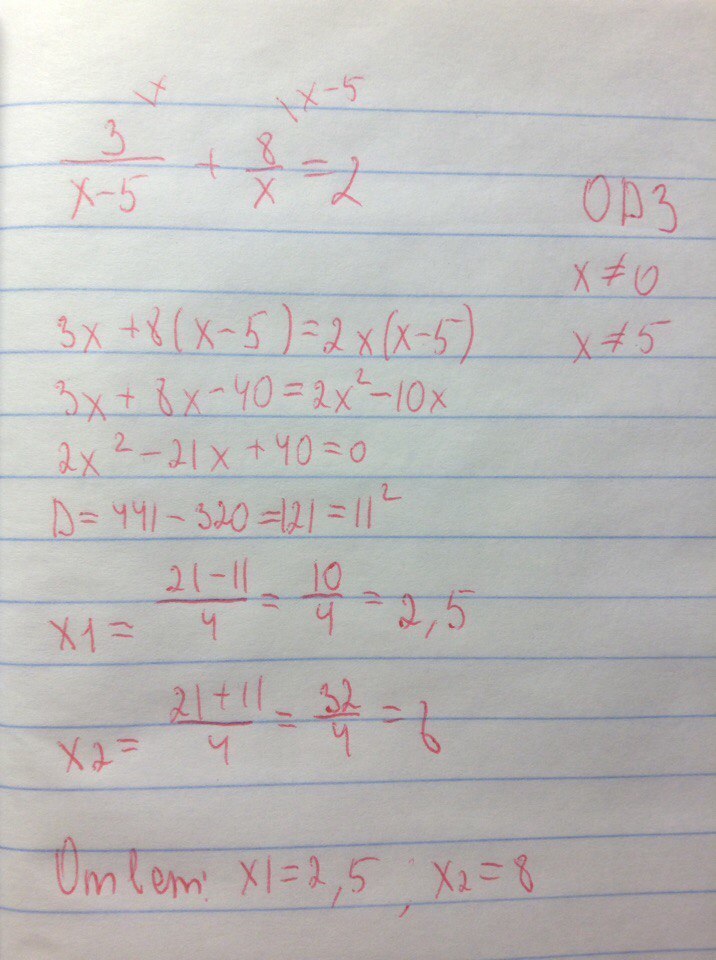 \x \x-5
3/(x-5) + 8/x = 2
ОДЗ
x ≠ 0
x ≠ 5
3x + 8(x-5) = 2x(x-5)
3x + 8x - 40 = 2x² - 10x
2x² - 21x + 40 = 0
D = 441 - 320 = 121 = 11²
x1 = (21-11)/4 = 10/4 = 2,5
x2 = (21+11)/4 = 32/4 = 8
Ответ: x1 = 2,5 ; x2 = 8